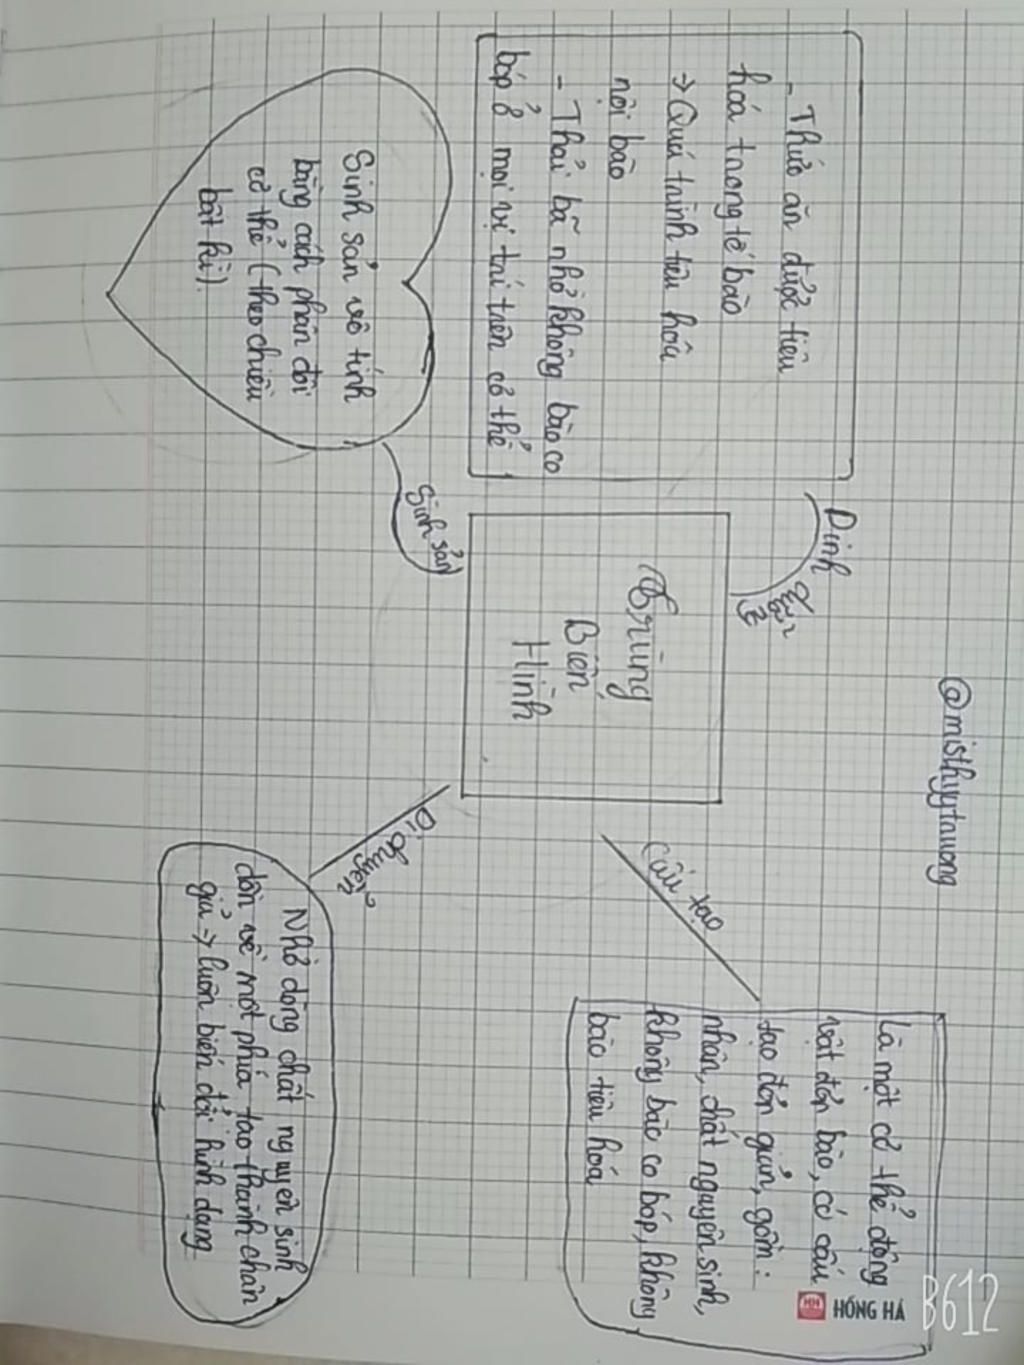 @misthyytauong
Dinh
dưỡng
- Thức ăn được tiêu
hoá trong tế bào
→ Quá trình tiêu hoá
nội bào
- Thải bã nhờ không bào co
bóp ở mọi vị trí trên cơ thể
Trùng
Biến
Hình
Cấu tạo
Là một cơ thể động
vật đơn bào, có cấu
tạo đơn giản, gồm:
nhân, chất nguyên sinh,
không bào co bóp, không
bào tiêu hoá
Sinh sản
Sinh sản vô tính
bằng cách phân đôi
cơ thể (theo chiều
bất kì).
Di chuyển
Nhờ dòng chất nguyên sinh
dồn về một phía tạo thành chân
giả → luôn biến đổi hình dạng
HỒNG HÀ
B612